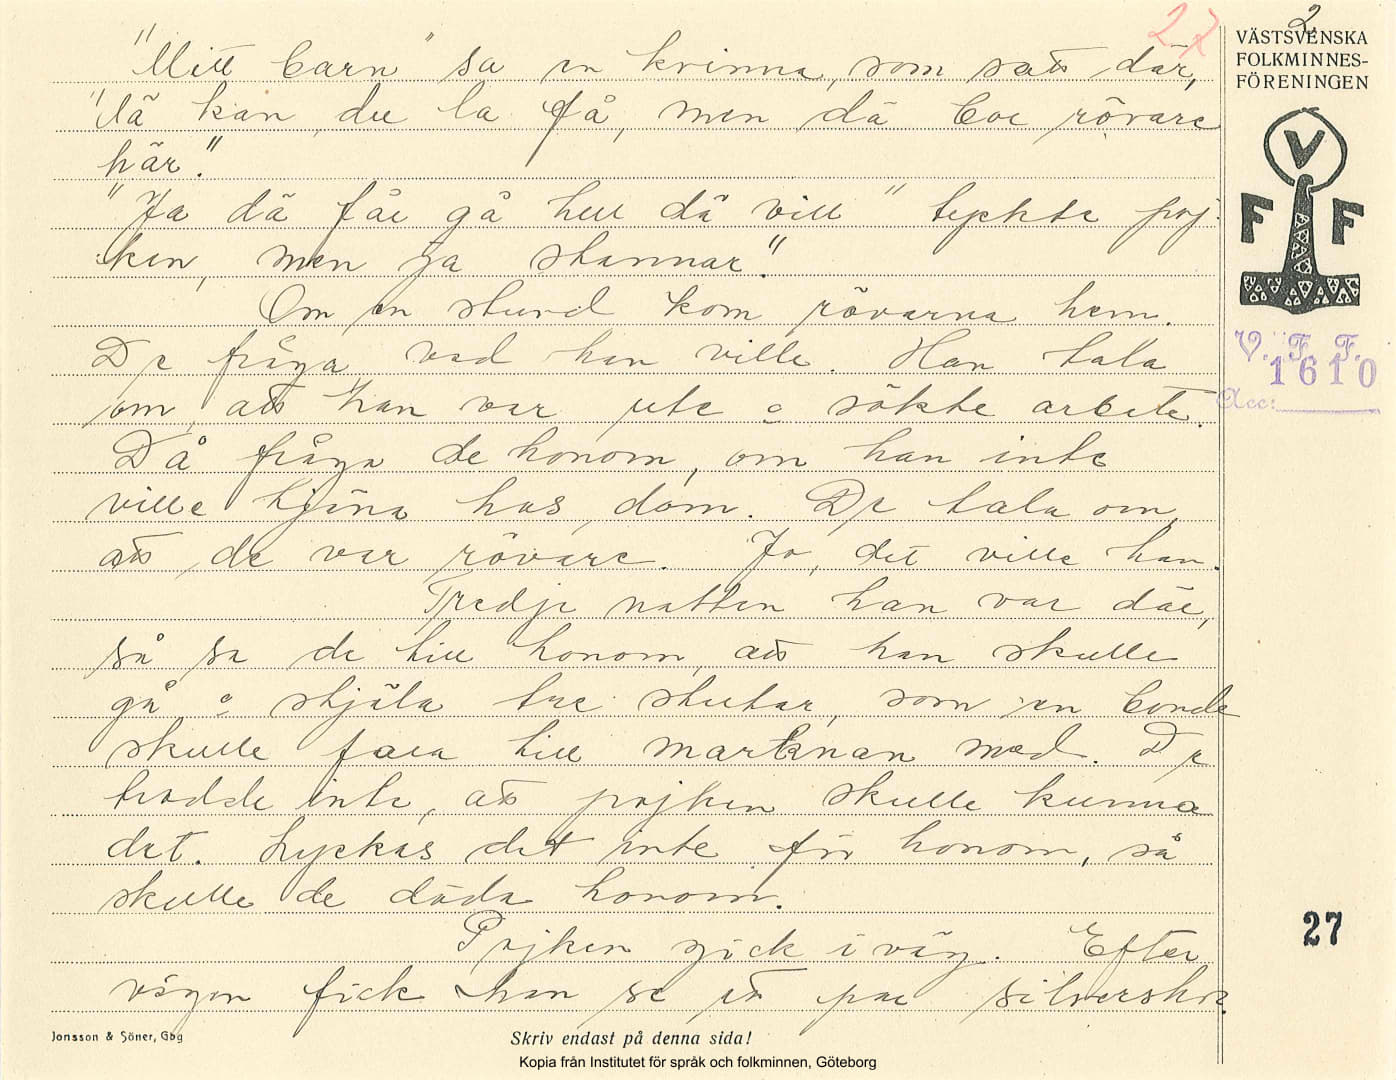 27
2
VÄSTSVENSKA
FOLKMINNES-
FÖRENINGEN
V
F F
V. F. F.
1610
Acc:
"Mitt barn" sa en kvinna, som satt där,
"dä kan du la få, men dä bor rövare
här."
"Ja dä får gå hur dä vill" tyckte poj-
ken, men ja stannar."
Om en stund kom rövarna hem.
De fråga vad han ville. Han tala
om, att han var ute o sökte arbete.
Då fråga de honom, om han inte
ville tjäna hos dom. De tala om,
att de var rövare. Jo, det ville han.
Tredje natten han var där,
så sa de till honom, att han skulle
gå o stjäla tre stutar, som en bonde
skulle fara till marknan med. De
trodde inte, att pojken skulle kunna
det. Lyckas det inte för honom, så
skulle de döda honom.
Pojken gick i väg. Efter
vägen fick han se ett par silverskor.
27
Jonsson & Söner, Gbg
Skriv endast på denna sida!
Kopia från Institutet för språk och folkminnen, Göteborg